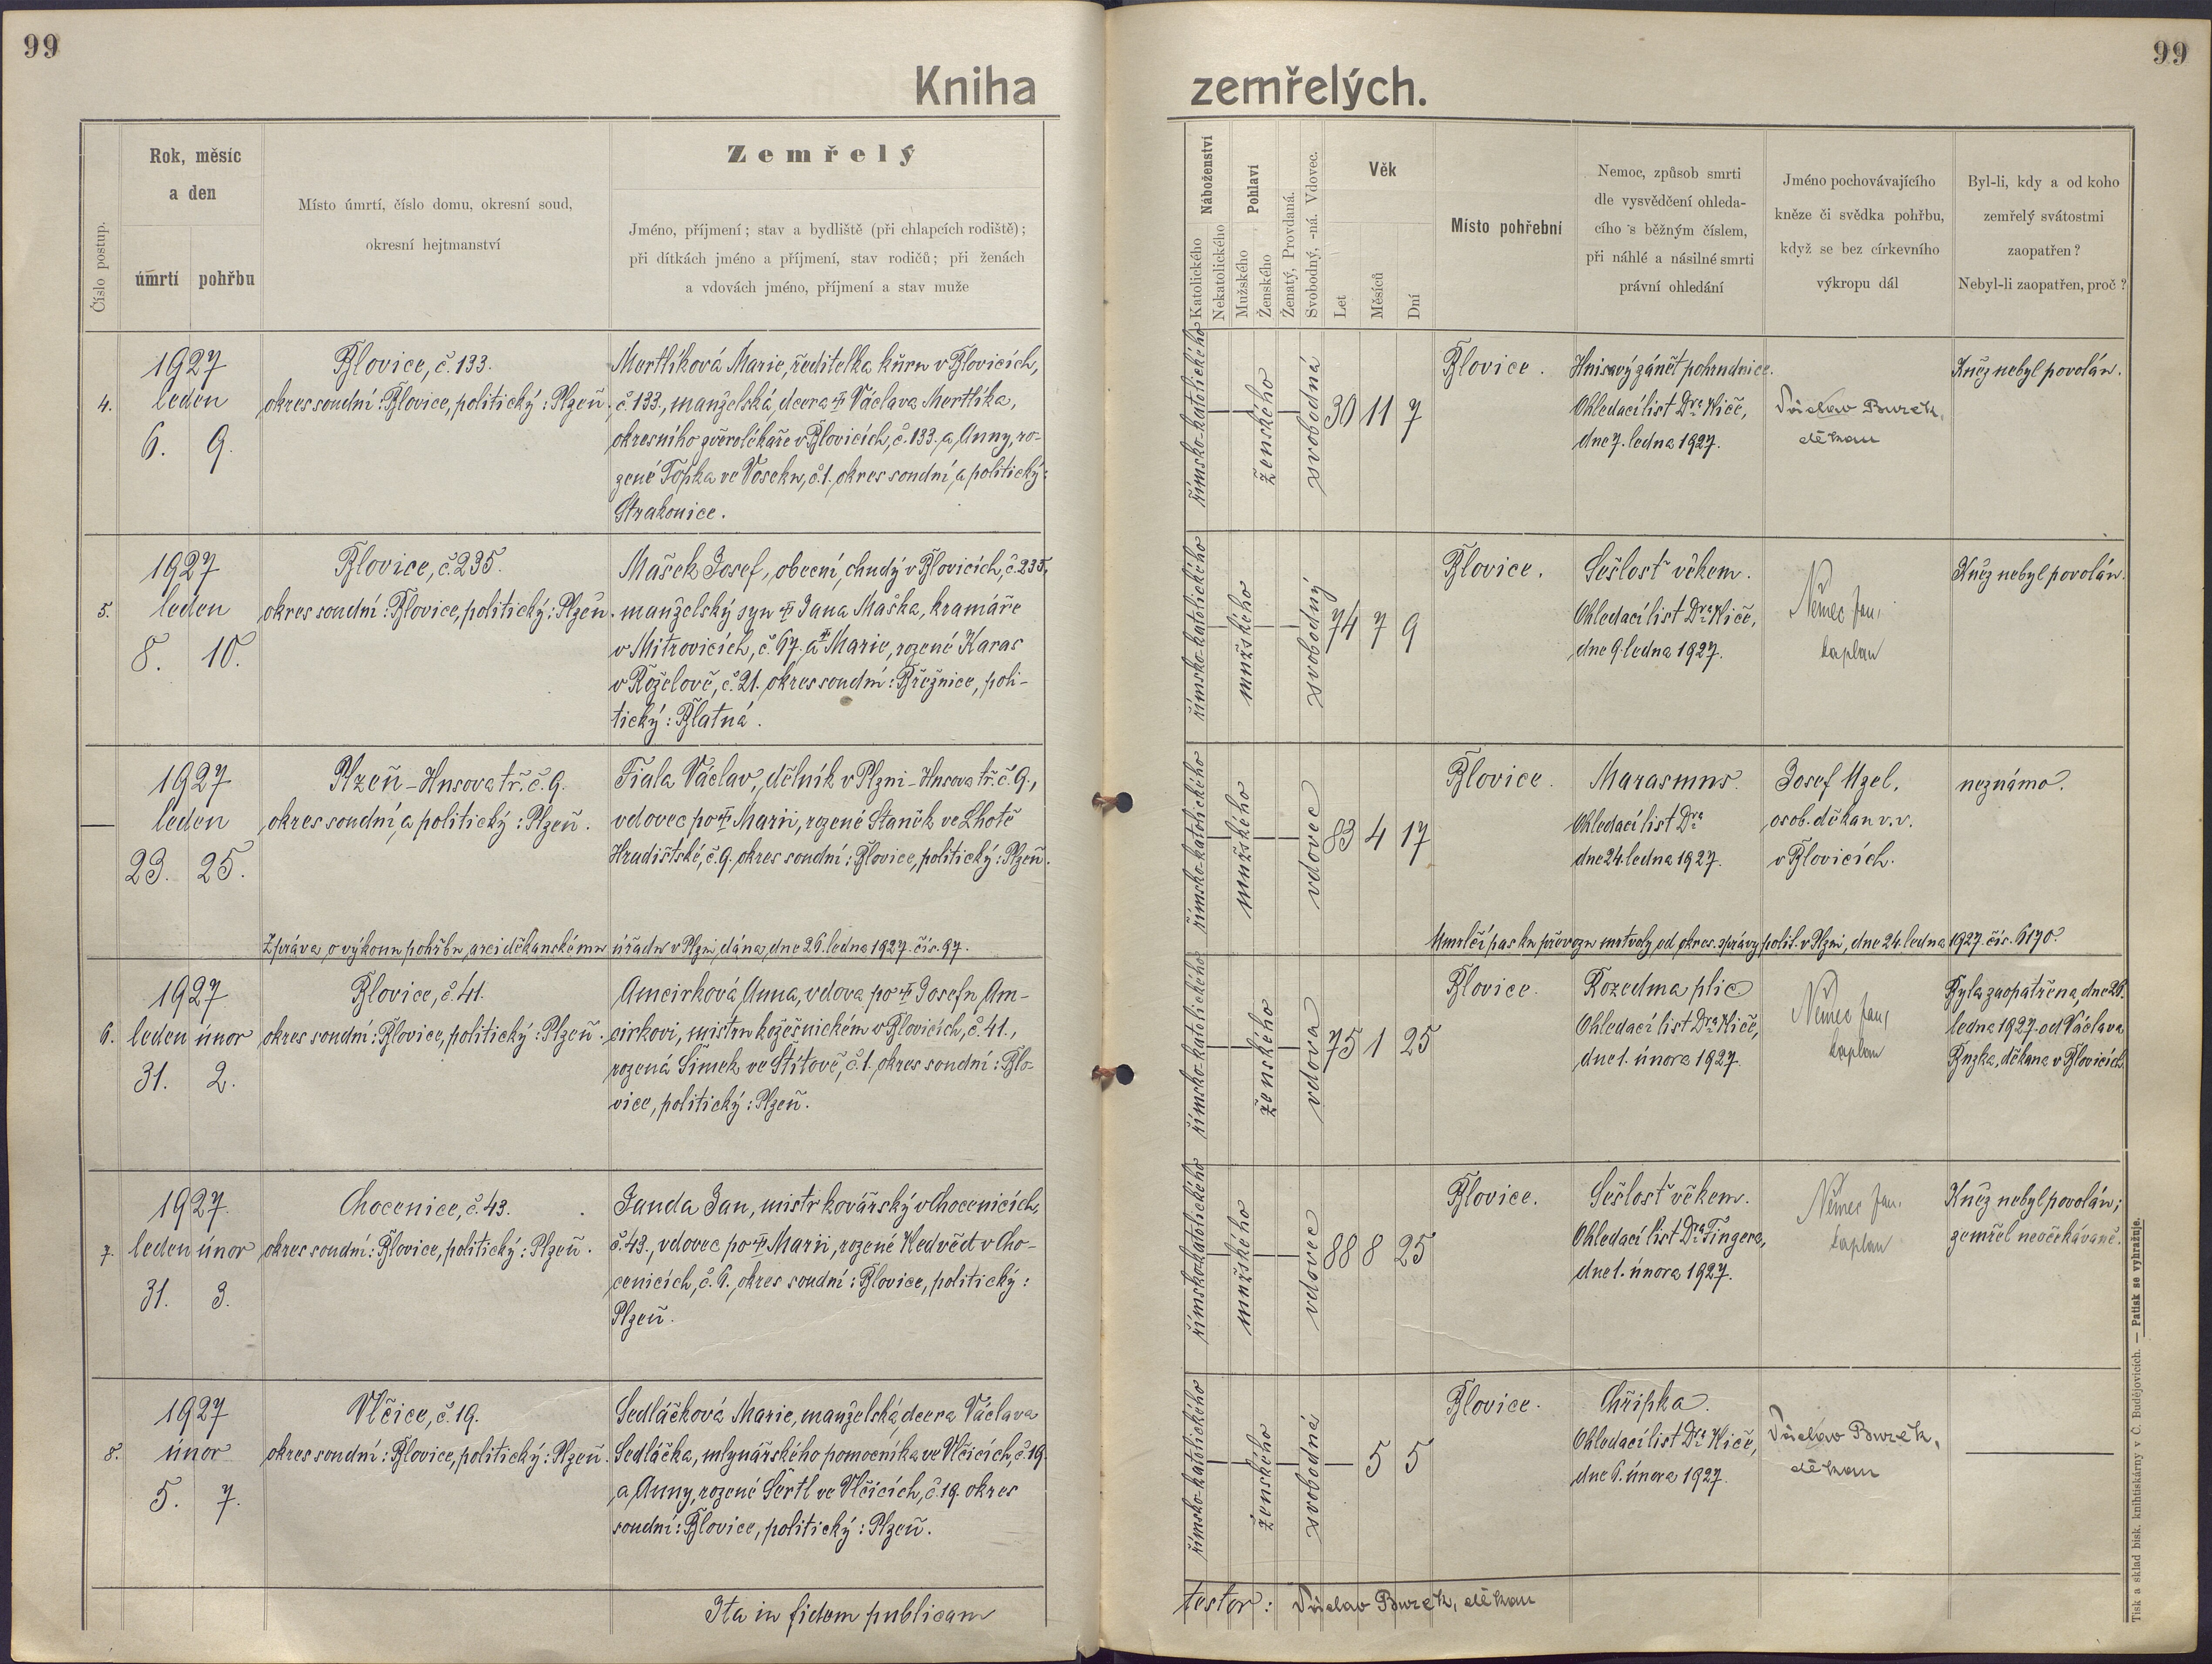 99
99
Kniha zemřelých.
Číslo postup.
Rok, měsíc
a den
úmrtí pohřbu
Místo úmrtí, číslo domu, okresní soud,
okresní hejtmanství
Zemřelý
Jméno, příjmení; stav a bydliště (při chlapcích rodiště);
při dítkách jméno a příjmení, stav rodičů; při ženách
a vdovách jméno, příjmení a stav muže
Náboženství
Katolického
Nekatolického
Pohlaví
Mužského
Ženského
Ženatý, Provdaná.
Svobodný, -ná. Vdovec.
Věk
Let
Měsíců
Dní
Místo pohřební
Nemoc, způsob smrti
dle vysvědčení ohleda-
cího s běžným číslem,
při náhlé a násilné smrti
právní ohledání
Jméno pochovávajícího
kněze či svědka pohřbu,
když se bez církevního
výkropu dál
Byl-li, kdy a od koho
zemřelý svátostmi
zaopatřen?
Nebyl-li zaopatřen, proč?
4.
1927
leden
6. 9.
Blovice, č. 133.
okres soudní: Blovice, politický: Plzeň.
Mertlíková Marie, ředitelka kůru v Blovicích,
č. 133., manželská dcera † Václava Mertlíka,
okresního zvěrolékaře v Blovicích, č. 133. a Anny, ro-
zené Topka ve Voseku, č. 1. okres soudní a politický:
Strakonice.
římsko-katolického
ženského
svobodná
30 11 7
Blovice.
Hnisavý zánět pohrudnice.
Ohledací list Dra Kiče,
dne 7. ledna 1927.
Václav Burek,
děkan
Kněz nebyl povolán.
5.
1927
leden
8. 10.
Blovice, č. 235.
okres soudní: Blovice, politický: Plzeň.
Mašek Josef, obecní chudý v Blovicích, č. 235,
manželský syn † Jana Maška, kramáře
v Mitrovicích, č. 67. a † Marie, rozené Karas
v Roželově, č. 21. okres soudní: Březnice, poli-
tický: Blatná.
římsko-katolického
mužského
svobodný
74 7 9
Blovice.
Sešlosť věkem.
Ohledací list Dra Kiče,
dne 9. ledna 1927.
Němec Jan,
kaplan
Kněz nebyl povolán.
1927
leden
23. 25.
Plzeň - Husova tř. č. 9.
okres soudní a politický: Plzeň.
Fiala Václav, dělník v Plzni - Husova tř. č. 9.,
vdovec po † Marii, rozené Staněk ve Lhotě
Hradištské, č. 9. okres soudní: Blovice, politický: Plzeň.
římsko-katolického
mužského
vdovec
83 4 17
Blovice.
Marasmus.
Ohledací list Dra
dne 24. ledna 1927.
Josef Uzel,
osob. děkan v. v.
v Blovicích.
neznámo.
Zpráva o výkonu pohřbu arciděkanskému úřadu v Plzni dána dne 26. ledna 1927. čís. 97.
Umrlčí pas ku převozu mrtvoly od okres. správy polit. v Plzni, dne 24. ledna 1927. čís. 6170.
6.
1927
leden únor
31. 2.
Blovice, č. 41.
okres soudní: Blovice, politický: Plzeň.
Amcirková Anna, vdova po † Josefu Am-
cirkovi, mistru kožešnickém v Blovicích, č. 41.,
rozená Šimek ve Štítově, č. 1. okres soudní: Blo-
vice, politický: Plzeň.
římsko-katolického
ženského
vdova
75 1 25
Blovice.
Rozedma plic
Ohledací list Dra Kiče,
dne 1. února 1927.
Němec Jan,
kaplan
Byla zaopatřena, dne 26.
ledna 1927. od Václava
Burka, děkana v Blovicích.
7.
1927.
leden únor
31. 3.
Chocenice, č. 43.
okres soudní: Blovice, politický: Plzeň.
Janda Jan, mistr kovářský v Chocenicích,
č. 43., vdovec po † Marii, rozené Nedvěd v Cho-
cenicích, č. 6. okres soudní: Blovice, politický:
Plzeň.
římsko-katolického
mužského
vdovec
88 8 25
Blovice.
Sešlosť věkem.
Ohledací list Dra Fingera,
dne 1. února 1927.
Němec Jan,
kaplan
Kněz nebyl povolán;
zemřel neočekávaně.
8.
1927
únor
5. 7.
Vlčice, č. 19.
okres soudní: Blovice, politický: Plzeň.
Sedláčková Marie, manželská dcera Václava
Sedláčka, mlynářského pomocníka ve Vlčicích, č. 19.
a Anny, rozené Šertl ve Vlčicích, č. 19. okres
soudní: Blovice, politický: Plzeň.
římsko-katolického
ženského
svobodná
5 5
Blovice.
Chřipka.
Ohledací list Dra Kiče,
dne 6. února 1927.
Václav Burek,
děkan
Ita in fidem publicam
testor: Václav Burek, děkan
Tisk a sklad bisk. knihtiskárny v Č. Budějovicích. — Patisk se vyhražuje.